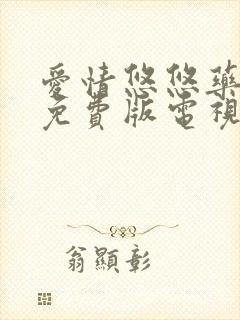 愛情悠悠藥
免費版電視
翁顯彰